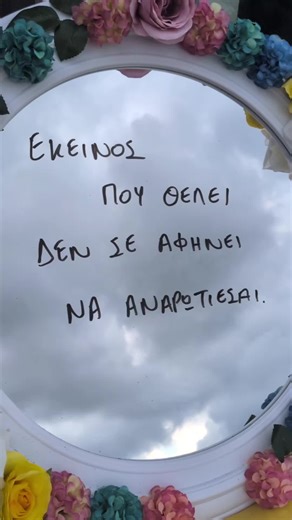 ΕΚΕΙΝΟΣ
ΠΟΥ ΘΕΛΕΙ
ΔΕΝ ΣΕ ΑΦΗΝΕΙ
ΝΑ ΑΝΑΡΩΤΙΕΣΑΙ.